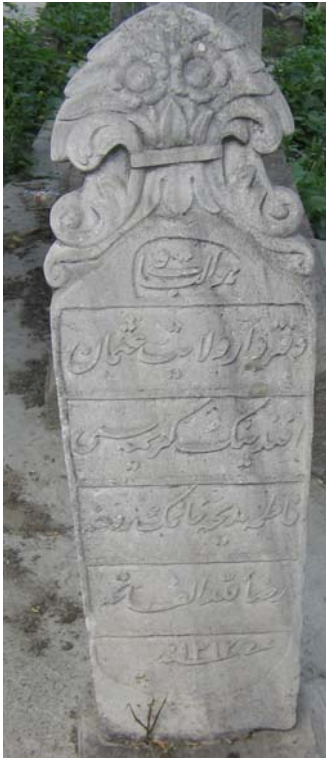 هو الباقی
دفتردار ولایت عثمان
افندینك كریمه‌سی
فاطمه مدیحه خانمك روحنه
رضاء لله الفاتحه
سنه ١٣١٢